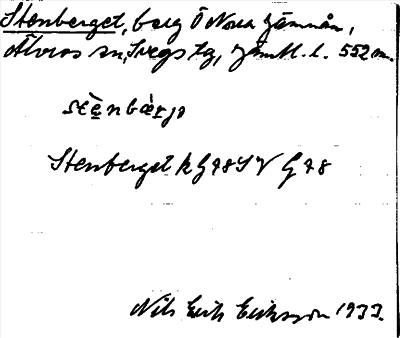 Stenberget, berg Ö Norra Jämnån,
Älvros sn, Svegs tg, Jämtl. l. 552 m.
Stenberget k G 48 SV G 48
Nils Erik Eriksson 1933.